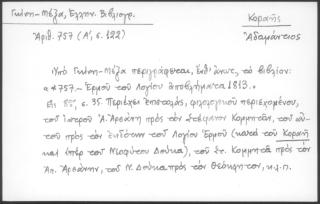 Γκίνη - Μέξα, Ἑλλην. Βιβλιογρ.
Κοραῆς
Ἀριθ. 757 (Α', σ. 122)
Ἀδαμάντιος
Ὑπὸ Γκίνη-Μέξα περιγράφεται, ἔνθ' ἀνωτ., τὸ βιβλίον:
«*757 ~ Ἑρμοῦ τοῦ Λογίου ἀποβλήματα 1813.»
Εἰς 8ον, σ. 35. Περιέχει ἐπιστολάς, φιλολογικοῦ περιεχομένου,
τοῦ ἰατροῦ Ἀ. Ἀρσάκη πρὸς τὸν Στέφανον Κομμητᾶν, τοῦ αὐ-
τοῦ πρὸς τὸν ἐκδότην τοῦ Λογίου Ἑρμοῦ (κατὰ τοῦ Κοραῆ
καὶ ὑπὲρ τοῦ Νεοφύτου Δούκα), τοῦ Στ. Κομμητᾶ πρὸς τὸν
Ἀπ. Ἀρσάκην, τοῦ Ν. Δούκα πρὸς τὸν Θεόκλητον, κ.λ.π.